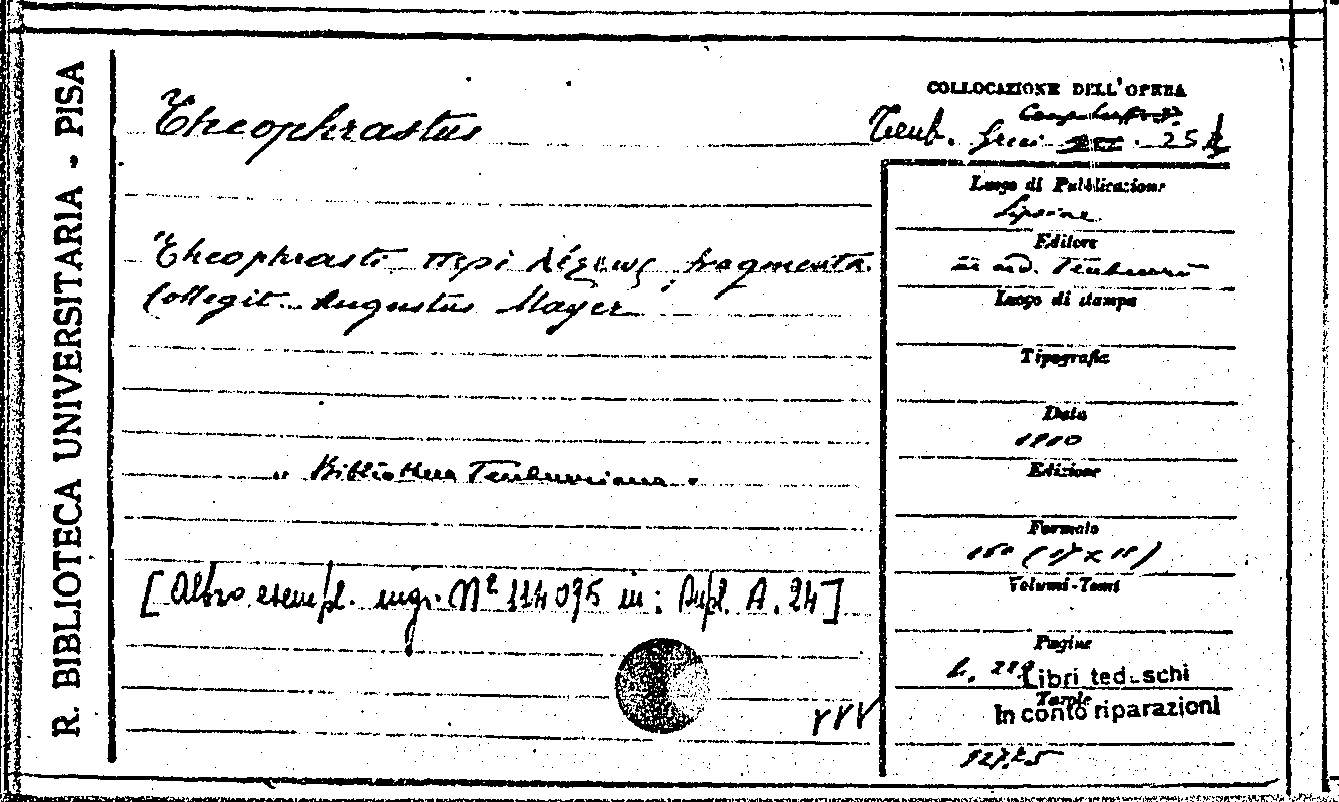 R. BIBLIOTECA UNIVERSITARIA - PISA
Theophrastus
Theophrasti περὶ λέξεως fragmenta.
Collegit Augustus Mayer
" Bibliotheca Teubneriana "
[Altro esempl. ingr. Nº 114095 in: Dupl. A. 24]
COLLOCAZIONE DELL'OPERA
Teub. Greci 25
Luogo di Pubblicazione
Lipsiae
Editore
in aed. Teubneri
Luogo di stampa
Tipografia
Data
1910
Edizione
Formato
16º (17 x 11)
Volumi-Tomi
Pagine
Libri tedeschi
Tavole
In conto riparazioni